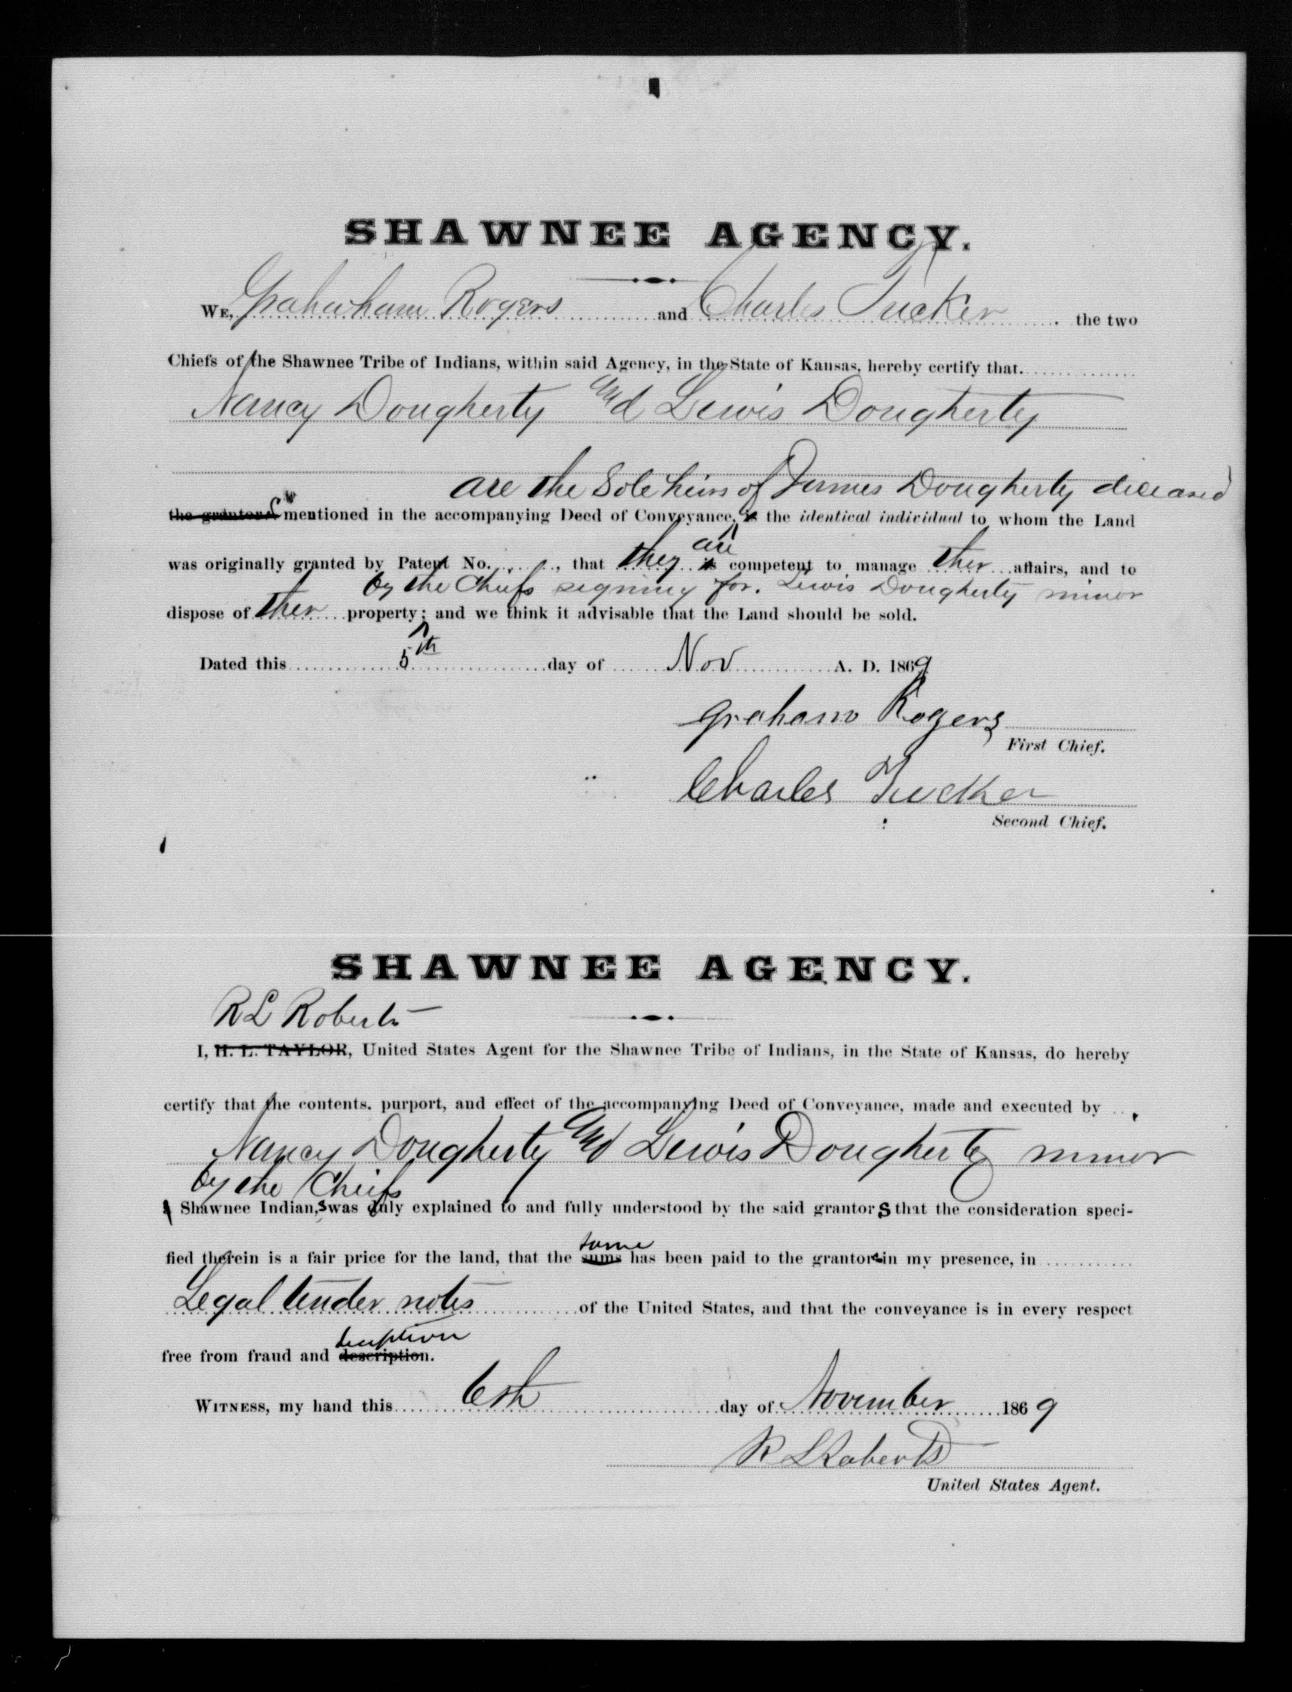 SHAWNEE AGENCY.
WE, Grahawham Rogers and Charles Tucker the two
Chiefs of the Shawnee Tribe of Indians, within said Agency, in the State of Kansas, hereby certify that
Nancy Dougherty and Lewis Dougherty
are the Sole heirs of James Dougherty deceased
the grantor mentioned in the accompanying Deed of Conveyance, is the identical individual to whom the Land
are
was originally granted by Patent No. , that they is competent to manage ther affairs, and to
by the Chiefs signing for Lewis Dougherty minor
dispose of ther property; and we think it advisable that the Land should be sold.
Dated this 5th day of Nov A. D. 1869
Graham Rogers
First Chief.
Charles Tucker
Second Chief.
SHAWNEE AGENCY.
R L Roberts
I, H. L. TAYLOR, United States Agent for the Shawnee Tribe of Indians, in the State of Kansas, do hereby
certify that the contents, purport, and effect of the accompanying Deed of Conveyance, made and executed by
Nancy Dougherty and Lewis Dougherty minor
by the Chiefs
a Shawnee Indian,s was duly explained to and fully understood by the said grantors that the consideration speci-
same
fied therein is a fair price for the land, that the sums has been paid to the grantors in my presence, in
Legal tender notes of the United States, and that the conveyance is in every respect
deception
free from fraud and description.
WITNESS, my hand this 6th day of November 1869
R L Roberts
United States Agent.